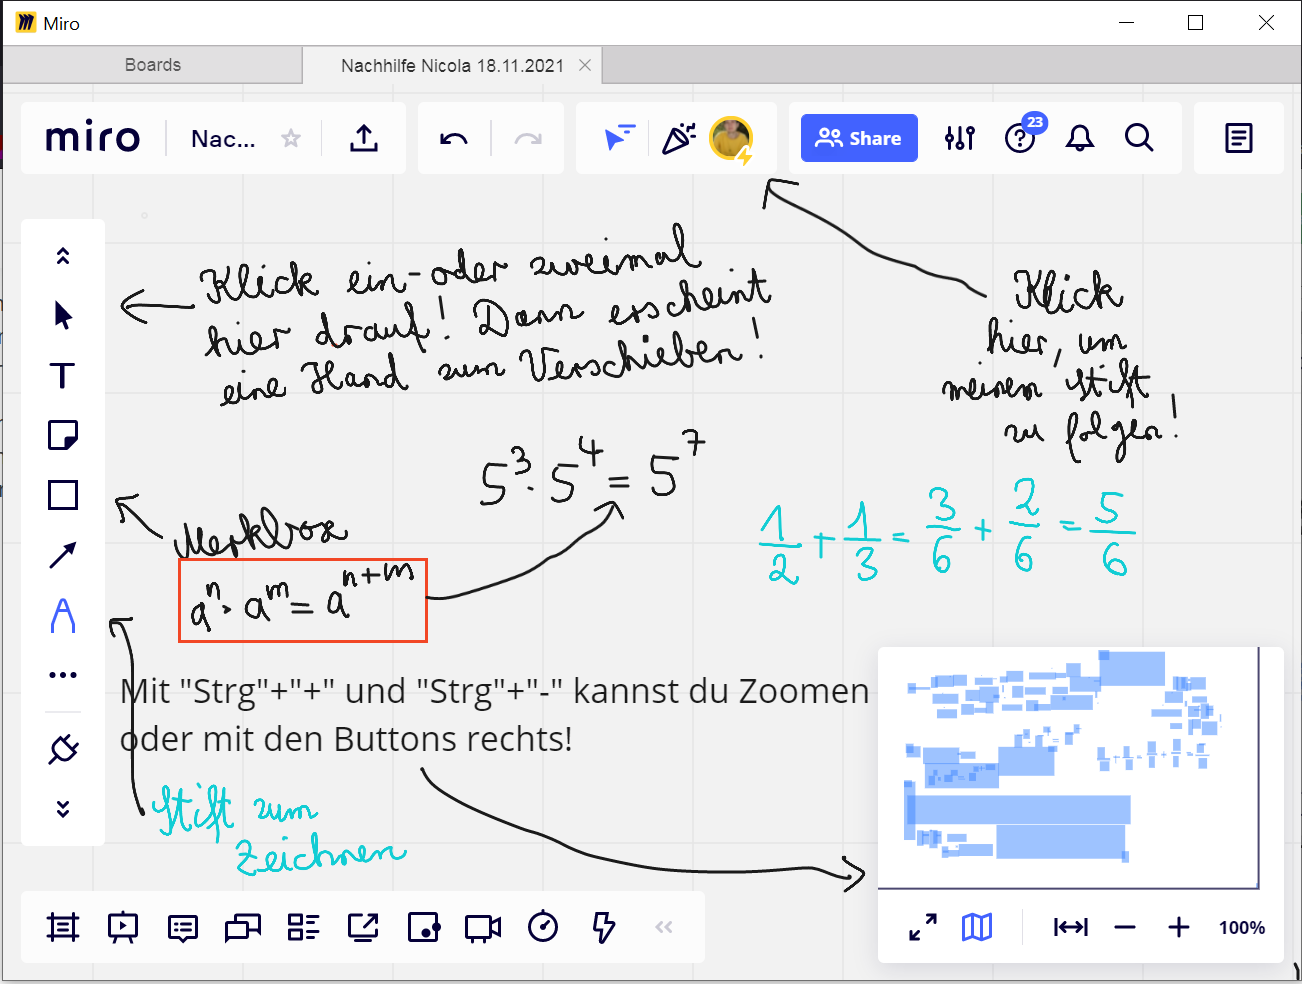 Miro
Boards
Nachhilfe Nicola 18.11.2021
miro
Nac...
Share
23
Klick ein- oder zweimal
hier drauf! Dann erscheint
eine Hand zum Verschieben!
Klick
hier, um
meinem Stift
zu folgen!
5³·5⁴=5⁷
1/2+1/3=3/6+2/6=5/6
Merkbox
aⁿ·aᵐ=aⁿ⁺ᵐ
Mit "Strg"+"+" und "Strg"+"-" kannst du Zoomen
oder mit den Buttons rechts!
Stift zum
Zeichnen
100%